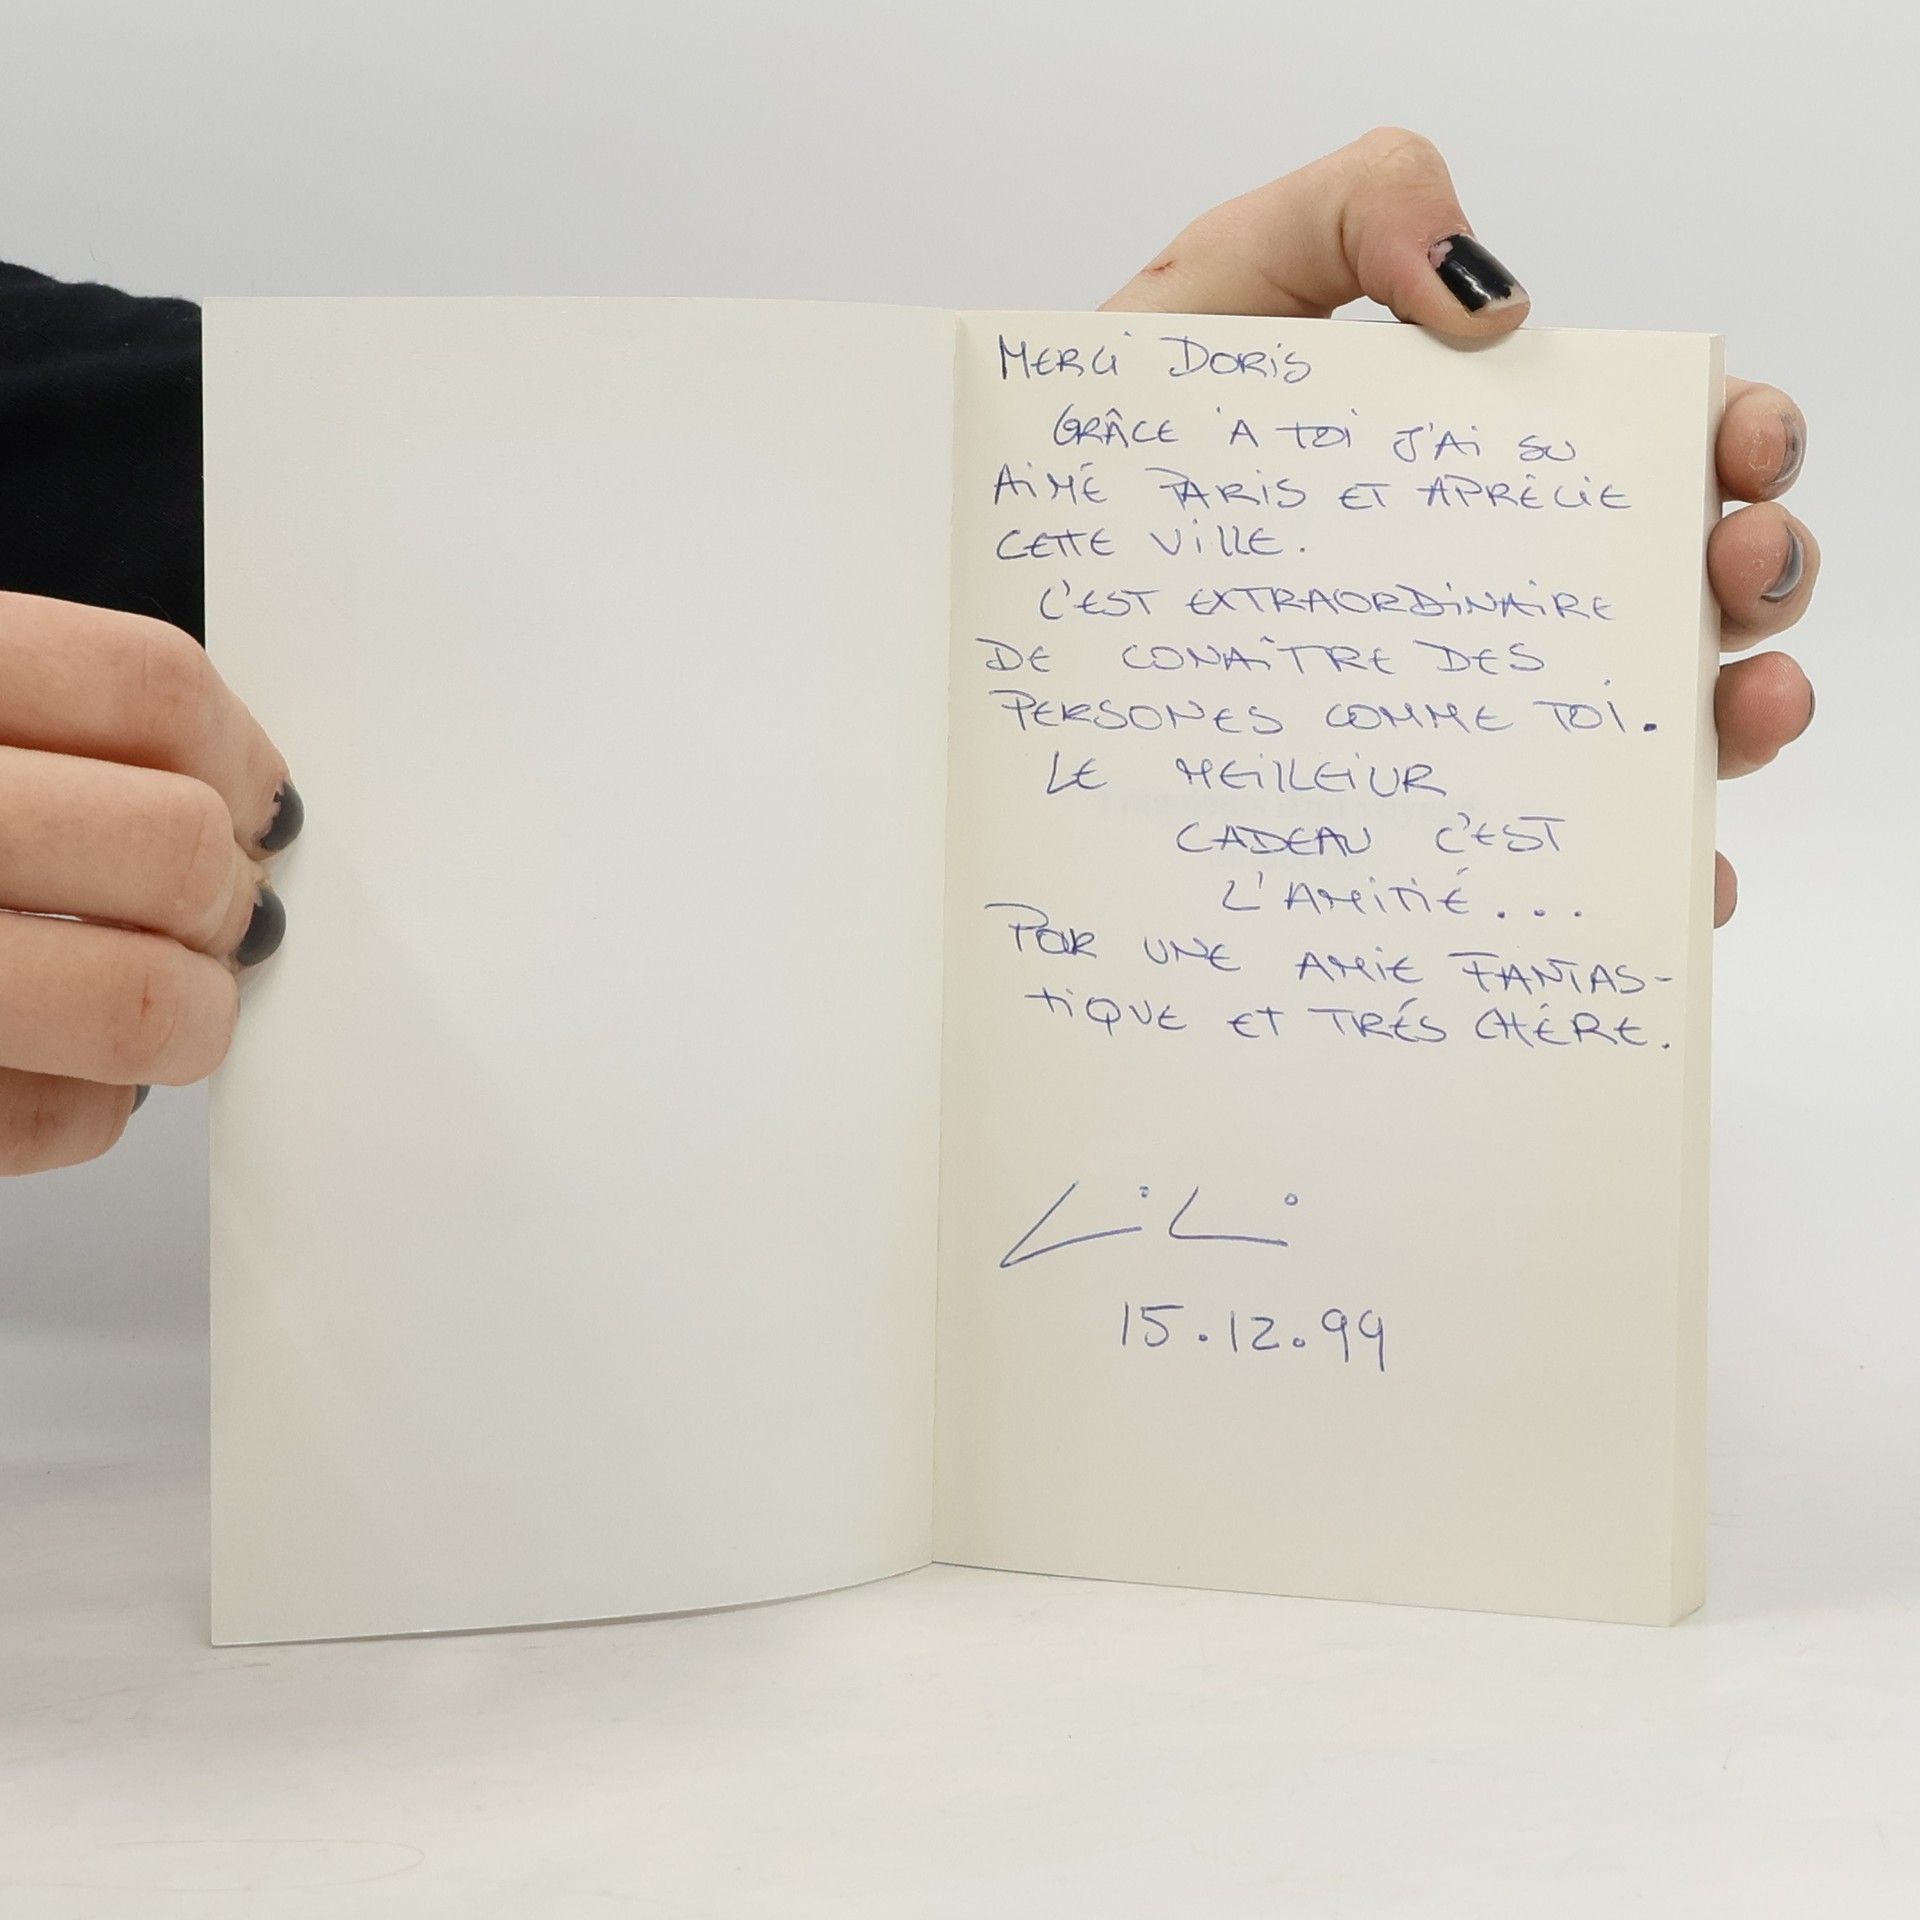 MERCi DORiS
GRÂCE À TOi J'Ai SU
AiMÉ PARiS ET APRÉCiE
CETTE ViLLE.
C'EST EXTRAORDiNAiRE
DE CONAÎTRE DES
PERSONES COMME TOi.
LE MEiLLEiUR
CADEAU C'EST
L'AMiTiÉ...
POUR UNE AMiE FANTAS-
TiQUE ET TRÉS CHÉRE.
LiLi
15.12.99